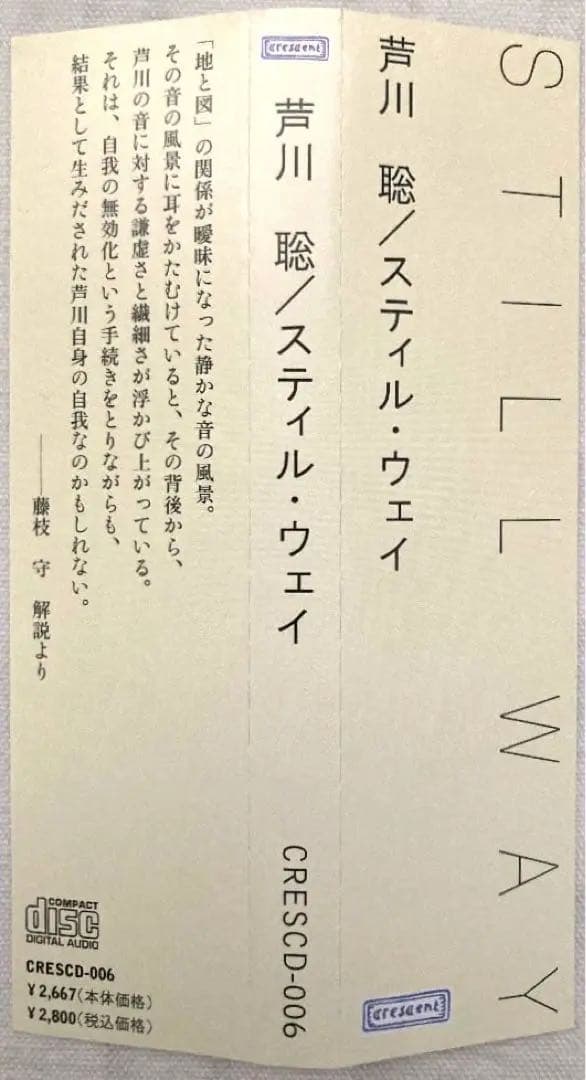 STILL WAY
芦川 聡／スティル・ウェイ
crescent
crescent
芦川 聡／スティル・ウェイ
CRESCD-006
「地と図」の関係が曖昧になった静かな音の風景。
その音の風景に耳をかたむけていると、その背後から、
芦川の音に対する謙虚さと繊細さが浮かび上がっている。
それは、自我の無効化という手続きをとりながらも、
結果として生みだされた芦川自身の自我なのかもしれない。
——藤枝 守 解説より
COMPACT
disc
DIGITAL AUDIO
CRESCD-006
￥2,667(本体価格)
￥2,800(税込価格)